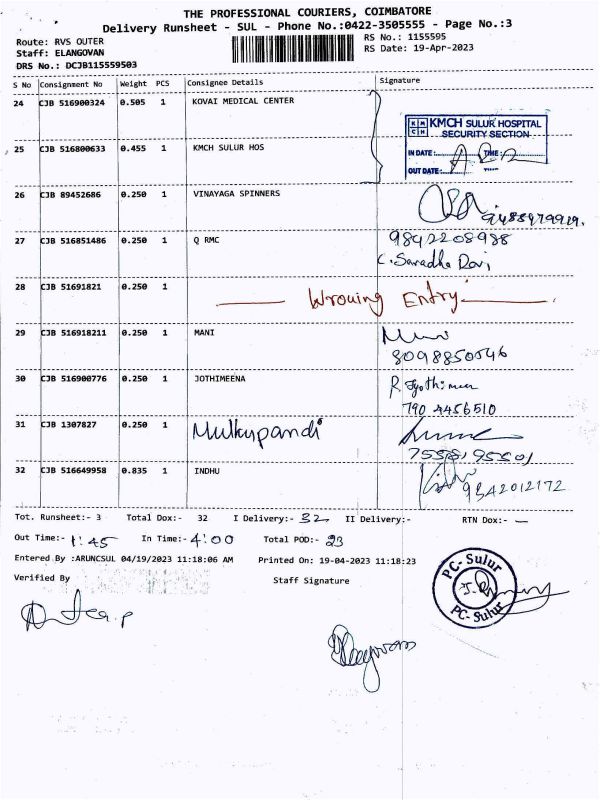 THE PROFESSIONAL COURIERS, COIMBATORE
Delivery Runsheet - SUL - Phone No.:0422-3505555 - Page No.:3
Route: RVS OUTER
RS No.: 1155595
Staff: ELANGOVAN
RS Date: 19-Apr-2023
DRS No.: DCJB115559503
S No Consignment No Weight PCS Consignee Details Signature
24 CJB 516900324 0.505 1 KOVAI MEDICAL CENTER
KMCH SULUR HOSPITAL
SECURITY SECTION
25 CJB 516800633 0.455 1 KMCH SULUR HOS
IN DATE: TIME:
OUT DATE:
26 CJB 89452686 0.250 1 VINAYAGA SPINNERS
27 CJB 516851486 0.250 1 Q RMC 9842208988
C. Saradha Devi
28 CJB 51691821 0.250 1 Wrouing Entry
29 CJB 516918211 0.250 1 MANI
8098850546
30 CJB 516900776 0.250 1 JOTHIMEENA
790 4456510
31 CJB 1307827 0.250 1
32 CJB 516649958 0.835 1 INDHU
9342012172
Tot. Runsheet:- 3 Total Dox:- 32 I Delivery:- 32 II Delivery:- RTN Dox:- —
Out Time:- 1:45 In Time:- 4:00 Total POD:- 23
Entered By :ARUNCSUL 04/19/2023 11:18:06 AM Printed On: 19-04-2023 11:18:23
Verified By Staff Signature
PC- Sulur
PC- Sulur